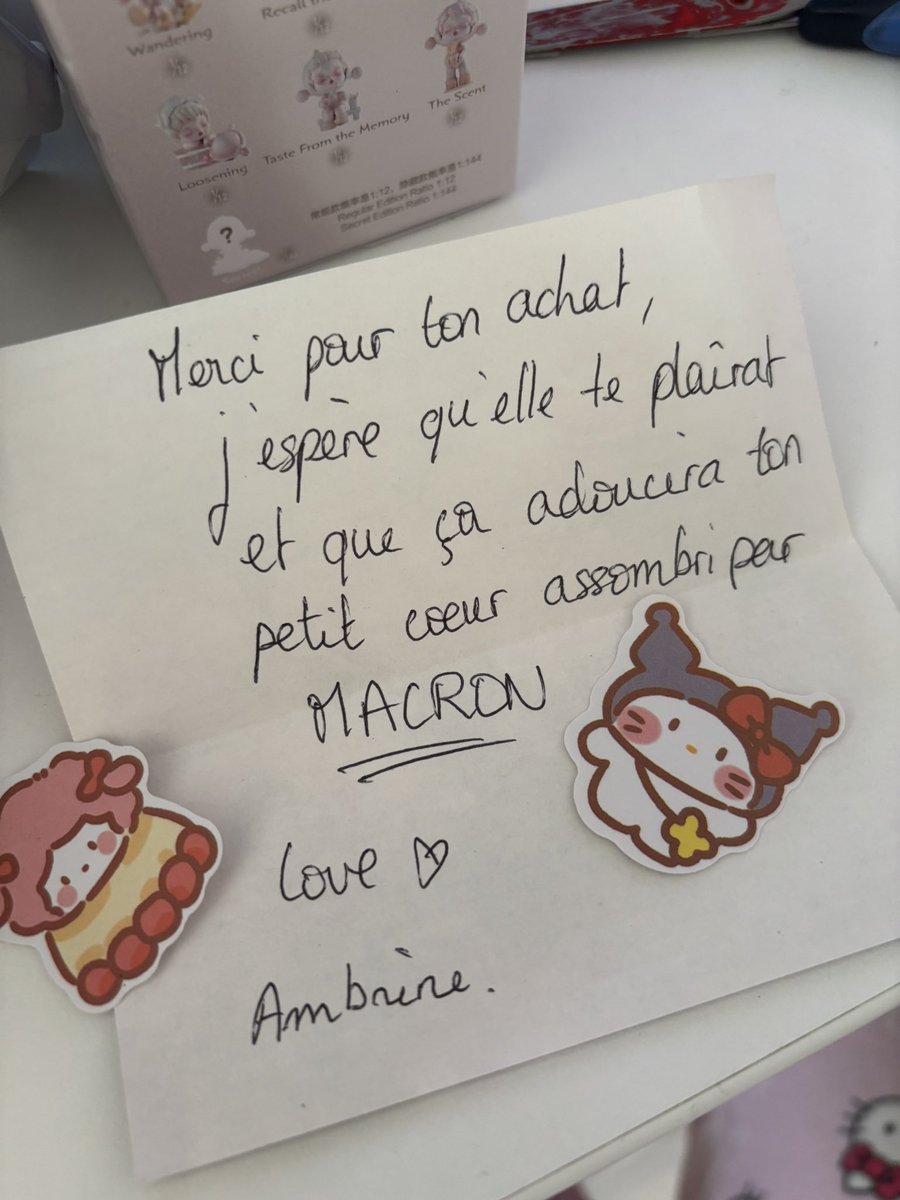 Wandering
1/12
Recall th
1/12
Loosening
1/12
Taste From the Memory
1/12
The Scent
1/12
常規款概率為1:12，隱藏款概率為1:144
Regular Edition Ratio 1:12
Secret Edition Ratio 1:144
?
Merci pour ton achat,
j'espère qu'elle te plaîrat
et que ça adoucira ton
petit coeur assombri par
MACRON
Love
Ambrine.